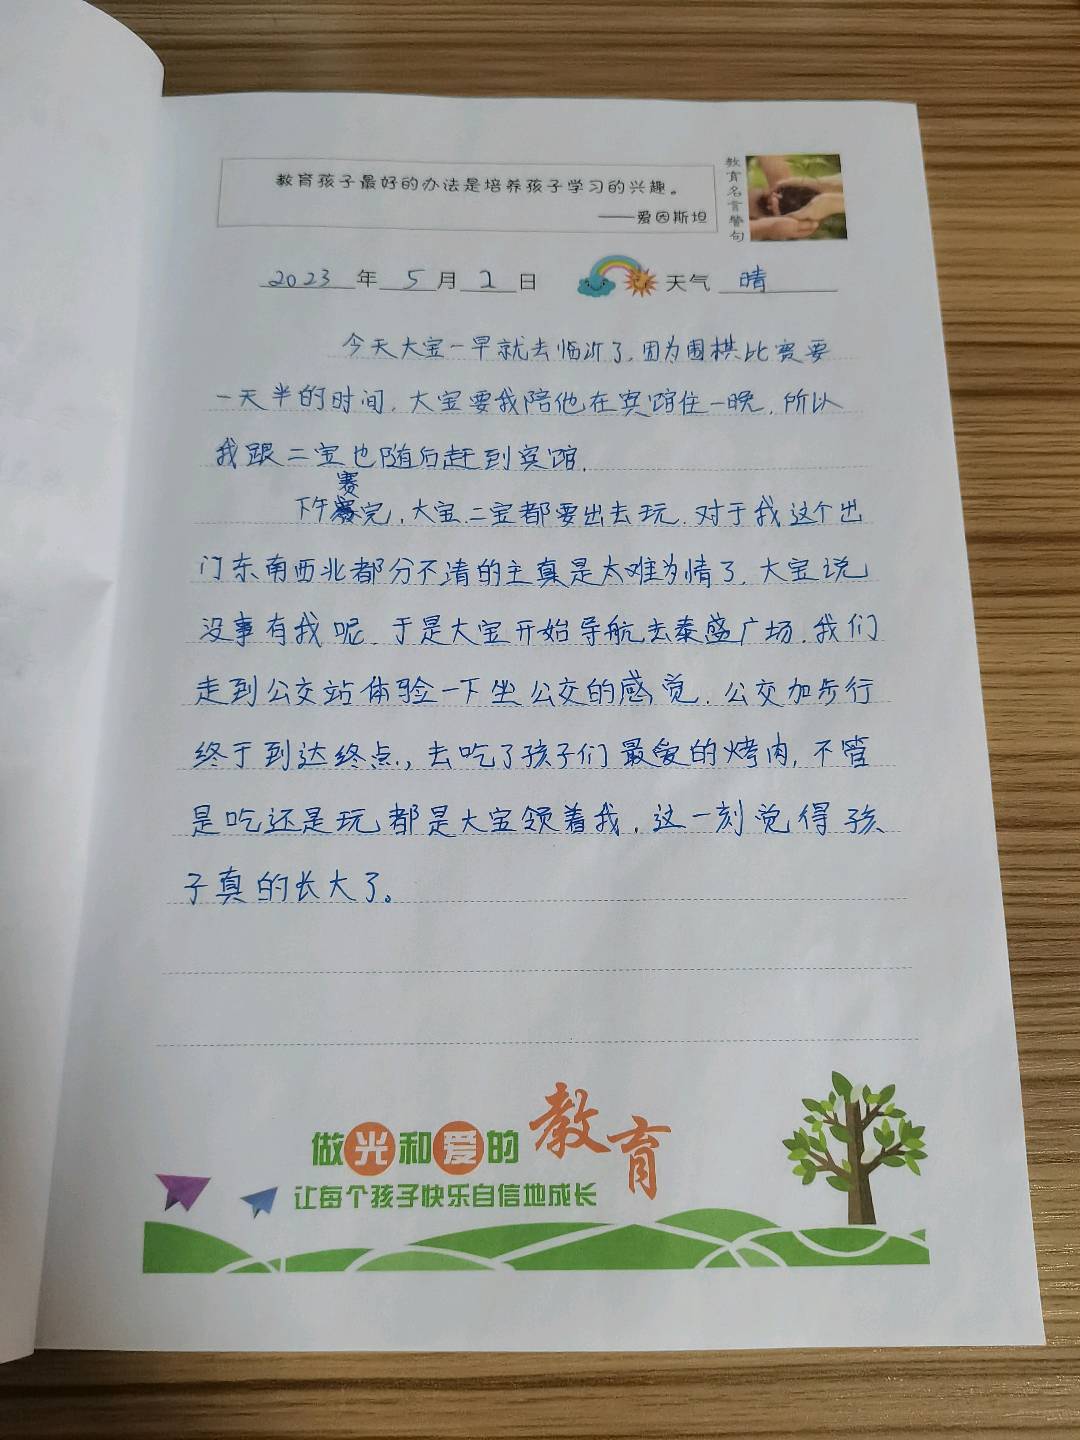 教育孩子最好的办法是培养孩子学习的兴趣。
——爱因斯坦
教育名言警句
2023年5月2日 天气 晴
今天大宝一早就去临沂了,因为围棋比赛要
一天半的时间,大宝要我陪他在宾馆住一晚,所以
我跟二宝也随后赶到宾馆.
赛
下午完,大宝.二宝都要出去玩.对于我这个出
门东南西北都分不清的主真是太难为情了.大宝说
没事有我呢.于是大宝开始导航去泰盛广场.我们
走到公交站体验一下坐公交的感觉.公交加步行
终于到达终点,去吃了孩子们最爱的烤肉,不管
是吃还是玩都是大宝领着我,这一刻觉得孩
子真的长大了。
做光和爱的教育
让每个孩子快乐自信地成长